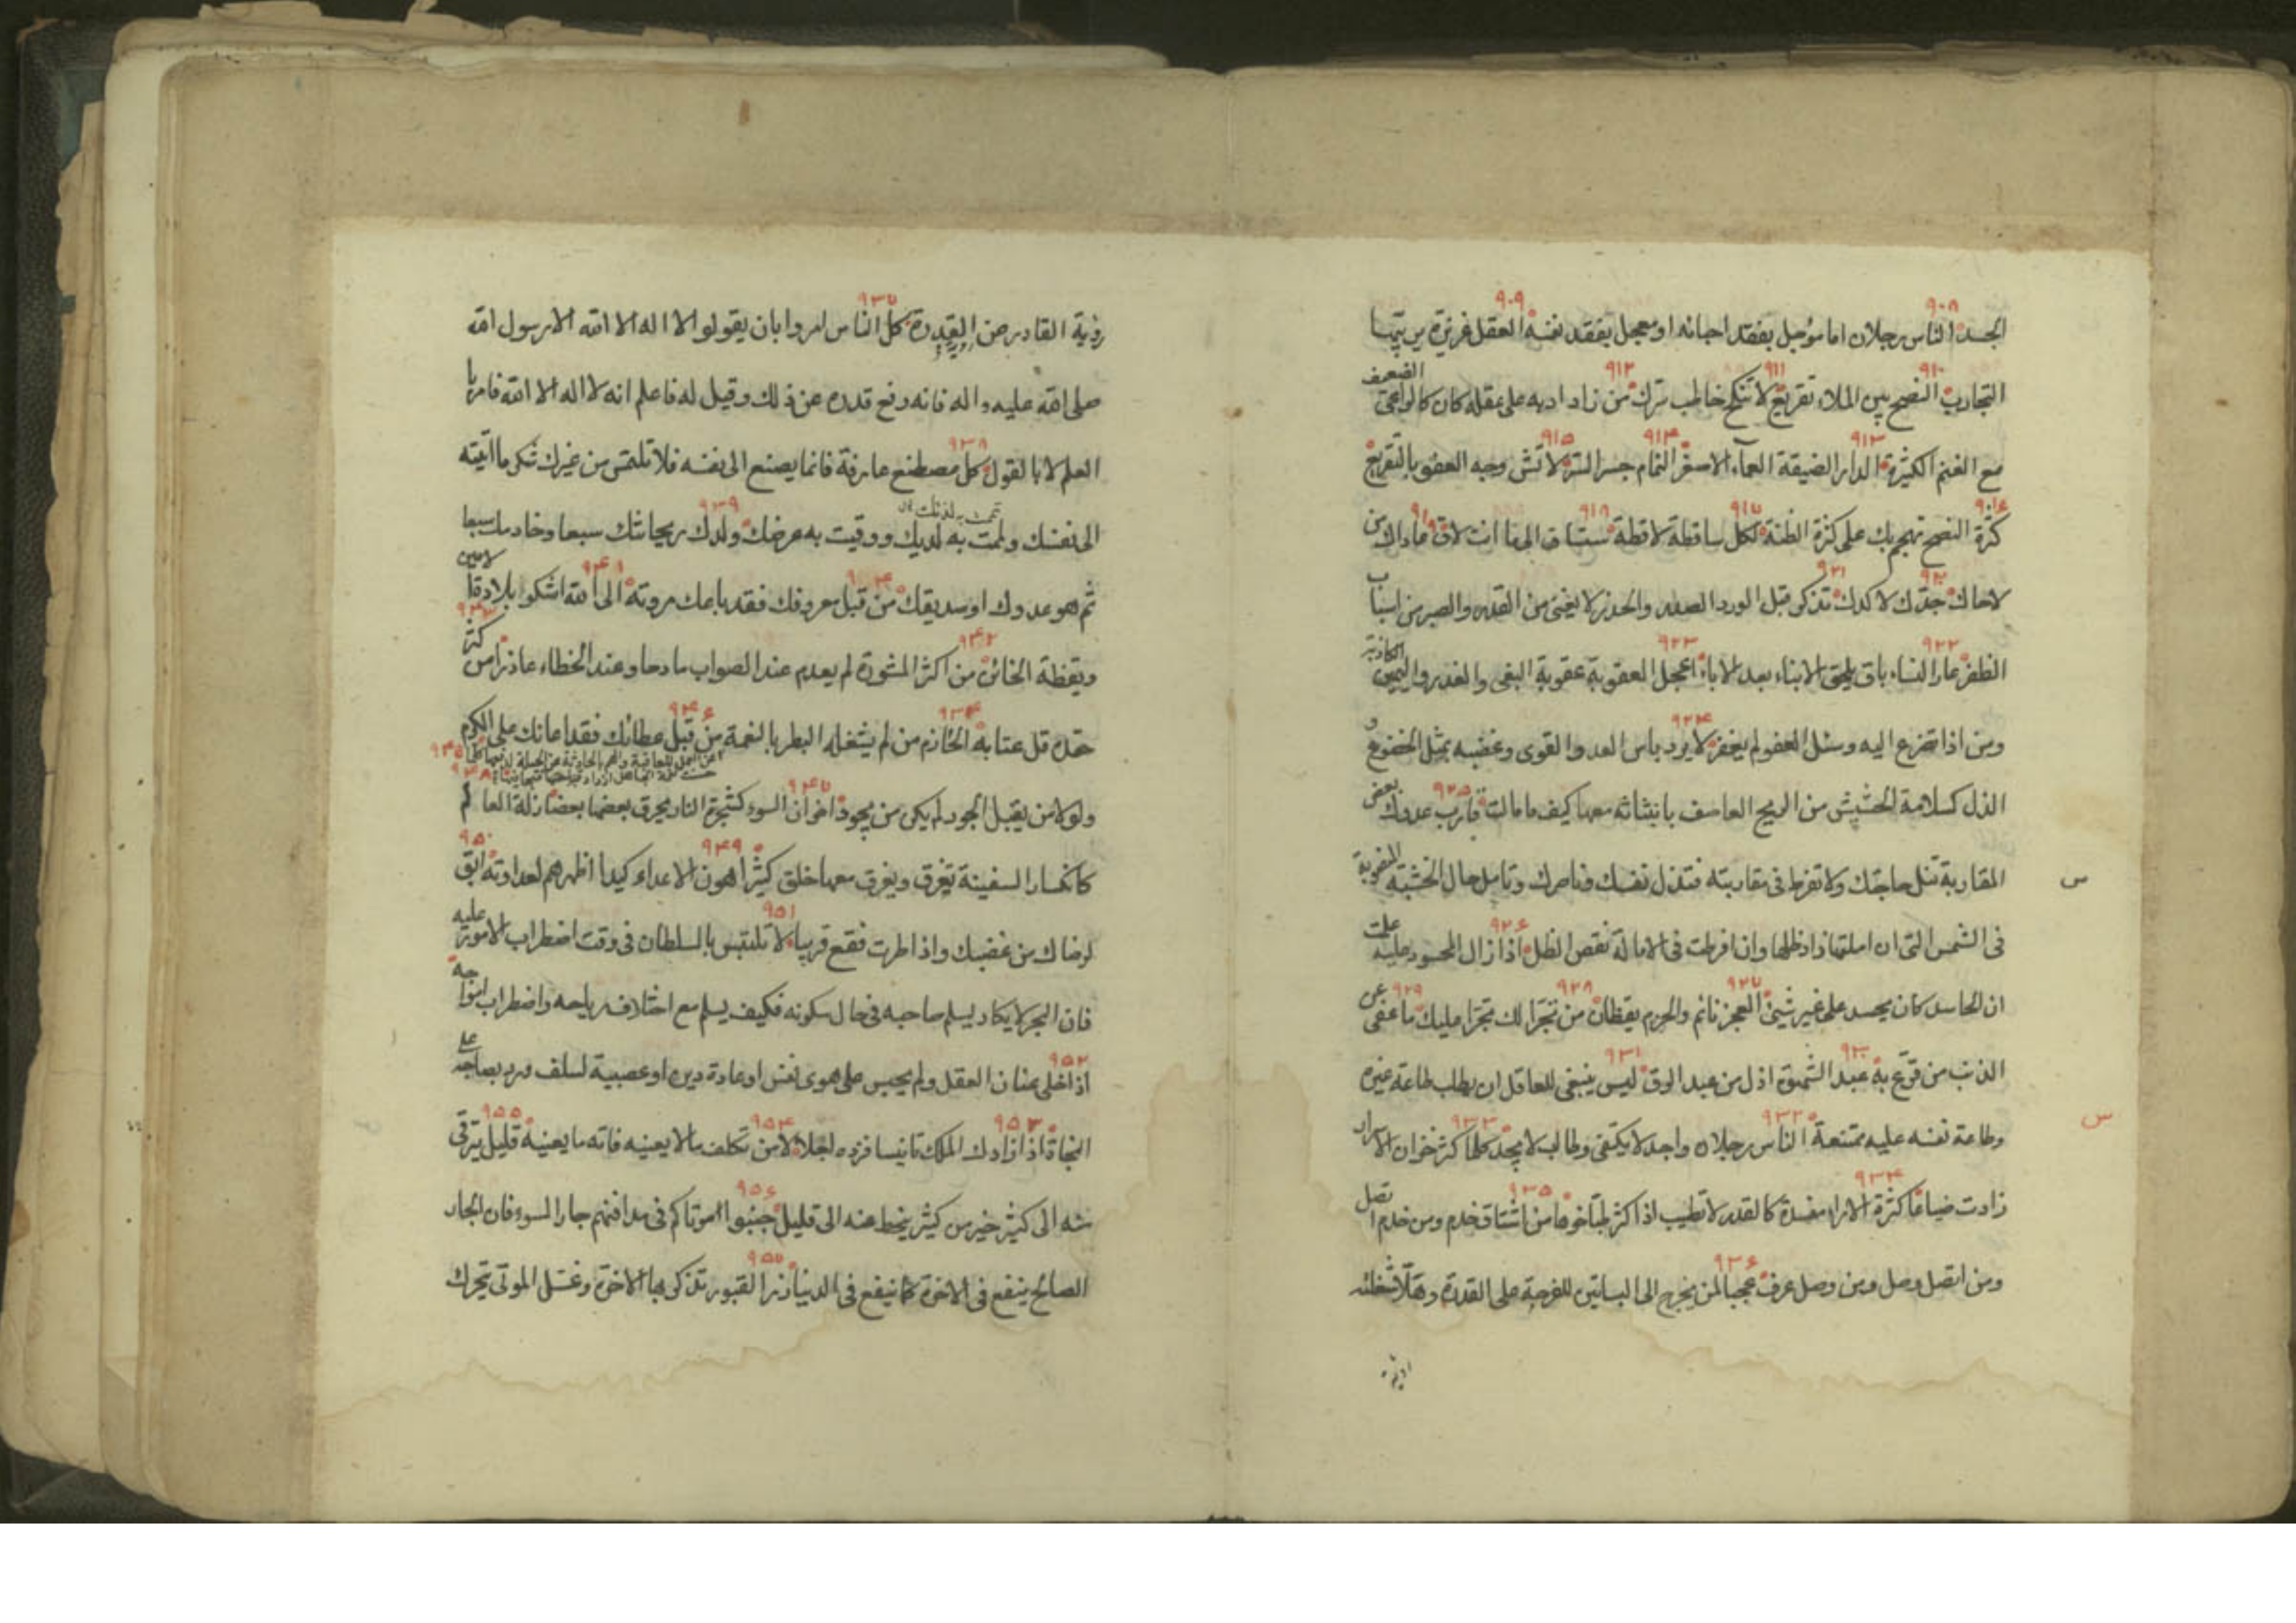 ٩٠٨ ٩٠٩
الجسد الناس رجلان اما مؤجل بفقد احبائه او معجل بفقد نفسه العقل غريزة يربيها
٩١٠ ٩١١ ٩١٢
التجارب النصح بين الملاء تقريع لا تنكح خاطب سرك من زاد ادبه على عقله كان كالراعى الضعيف
٩١٣ ٩١٤ ٩١٥
مع الغنم الكثيرة الدار الضيقة العماء الاصغر النمام جسر الشر لا تشن وجه العفو بالتقريع
٩١٦ ٩١٧ ٩١٨ ٩١٩
كثرة النصح تهجم بك على كثرة الظنة لكل ساقطة لاقطة ستساق الى ما انت لاق عاداك من
٩٢٠ ٩٢١
لاحاك جدك لا كدك تذكر قبل الورد الصدر والحذر لا يغنى من القدر والصبر من اسباب
٩٢٢ ٩٢٣
الظفر عار النساء باق يلحق الابناء بعد الاباء اعجل العقوبة عقوبة البغى والغدر واليمين الكاذبة
٩٢٤
ومن اذا تضرع اليه وسئل العفو لم يغفر لا يرد باس العدو القوى وغضبه بمثل الخضوع و
٩٢٥
الذل كسلامة الحشيش من الريح العاصف بانثنائه معها كيف ما مالت قارب عدوك بعض
المقاربة تنل حاجتك ولا تفرط فى مقاربته فتذل نفسك وناصرك وتامل حال الخشبة المنصوبة
٩٢٦
فى الشمس التى ان املتها زاد ظلها وان افرطت فى الامالة نقص الظل اذا زال المحسود عليه علمت
٩٢٧ ٩٢٨ ٩٢٩
ان الحاسد كان يحسد على غير شىء العجز نائم والحزم يقظان من تجرا لك تجرا عليك ما عفى عن
٩٣٠ ٩٣١
الذنب من قرع به عبد الشهوة اذل من عبد الرق ليس ينبغى للعاقل ان يطلب طاعة غيره
٩٣٢ ٩٣٣
وطاعة نفسه عليه ممتنعة الناس رجلان واجد لا يكتفى وطالب لا يجد كلما كثر خزان الاسرار
٩٣٤ ٩٣٥
زادت ضياعا كثرة الاراء مفسدة كالقدر لا تطيب اذا كثر طباخوها من اشتاق خدم ومن خدم اتصل
٩٣٦
ومن اتصل وصل ومن وصل عرف عجبا لمن يخرج الى البساتين للفرجة على القدرة وهلا شغلته
س
س
٩٣٧
رؤية القادر عن القدرة كل الناس امروا بان يقولوا لا اله الا الله الا رسول الله
صلى الله عليه واله فانه رفع قدره عن ذلك وقيل له فاعلم انه لا اله الا الله فامر با
٩٣٨
العلم لا بالقول كل مصطنع عارفة فانما يصنع الى نفسه فلا تلتمس من غيرك شكر ما اتيته
٩٣٩
الى نفسك وتممت به لذتك ووقيت به عرضك ولدك ريحانتك سبعا وخادمك سبعا
٩٤٠ ٩٤١
ثم هو عدوك او صديقك من قبل معروفك فقد باعك مروته الى الله اشكو بلادة الامين
٩٤٢ ٩٤٣
ويقظة الخائن من اكثر المشورة لم يعدم عند الصواب مادحا وعند الخطاء عاذرا من كثر
٩٤٤ ٩٤٥ ٩٤٦
حقده قل عتابه الحازم من لم يشغله البطر بالنعمة من قبل عطائك فقد اعانك على الكرم
٩٤٧ ٩٤٨
ولولا من يقبل الجود لم يكن من يجود اخوان السوء كشجرة النار يحرق بعضها بعضا زلة العالم
٩٤٩ ٩٥٠
كانكسار السفينة تغرق ويغرق معها خلق كثير اهون الاعداء كيدا اظهرهم لعداوته ابق
٩٥١
لرضاك من غضبك واذا طرت فقع قريبا لا تلتبس بالسلطان فى وقت اضطراب الامور عليه
فان البحر لا يكاد يسلم صاحبه فى حال سكونه فكيف يسلم مع اختلاف رياحه واضطراب امواجه
٩٥٢
اذا خلى عنان العقل ولم يحبس على هوى نفس او عادة دين او عصبية لسلف ورد بصاحبه على
٩٥٣ ٩٥٤ ٩٥٥
النجاة اذا زادك الملك تانيسا فزده اجلالا من تكلف ما لا يعنيه فاته ما يعنيه قليل يترقى
٩٥٦
منه الى كثير خير من كثير ينحط عنه الى قليل جنبوا موتاكم فى مدافنهم جار السوء فان الجار
٩٥٧
الصالح ينفع فى الاخرة كما ينفع فى الدنيا زر القبور تذكر بها الاخرة وغسل الموتى يتحرك